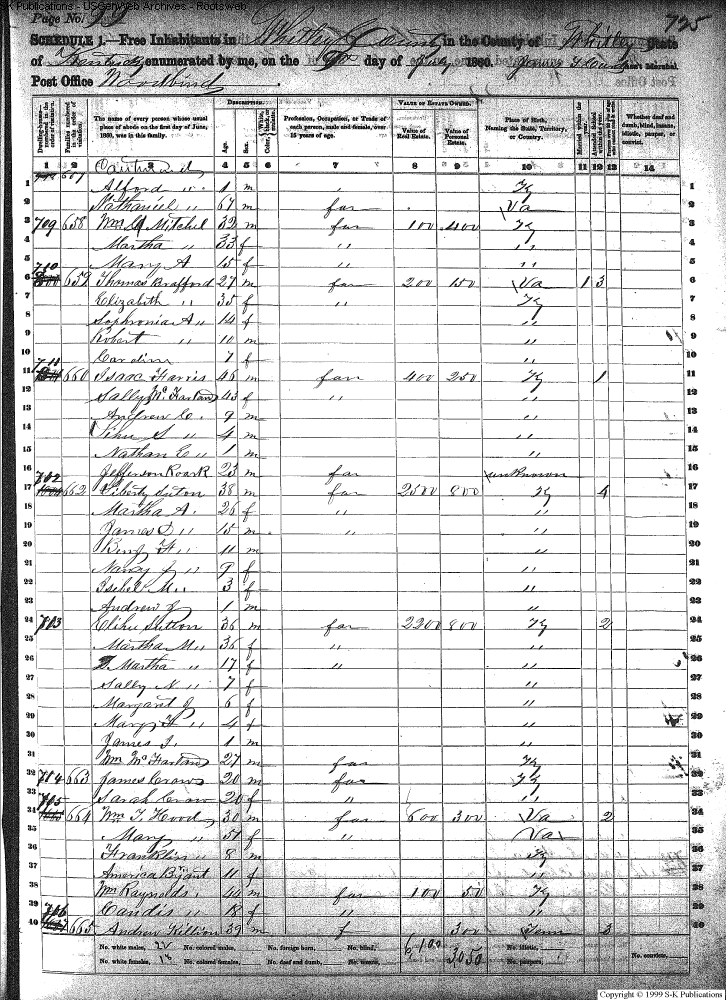 S-K Publications - USGenWeb Archives - Rootsweb
Page No. 99 725
SCHEDULE 1.—Free Inhabitants in Whitley County in the County of Whitley State
of Kentucky enumerated by me, on the day of July 1860. Ass't Marshal.
Post Office Woodbine
DESCRIPTION. VALUE OF ESTATE OWNED.
Dwelling-house— numbered in the order of visitation. Families numbered in the order of visitation. The name of every person whose usual place of abode on the first day of June, 1860, was in this family. Age. Sex. Color, White, black, or mulatto. Profession, Occupation, or Trade of each person, male and female, over 15 years of age. Value of Real Estate. Value of Personal Estate. Place of Birth, Naming the State, Territory, or Country. Married within the year. Attended School within the year. Whether deaf and dumb, blind, insane, idiotic, pauper, or convict.
1 2 3 4 5 6 7 8 9 10 11 12 13 14
1 Alford " 1 m " Ky 1
2 Nathaniel " 67 m far Va 2
3 709 658 Wm Mitchel 32 m far 100 400 Ky 3
4 Martha " 33 f " " 4
5 Mary A 15 f " " 5
6 710 659 Thomas Brafford 27 m far 200 150 Va 1 3 6
7 Elizabeth " 35 f " Ky 7
8 Sophronia A " 14 f " 8
9 Robert " 10 m " 9
10 Carolin 7 f " 10
11 711 660 Isaac Harris 46 m far 400 250 Ky 1 11
12 Sally McFarland 43 f " " 12
13 Andrew C. 9 m " 13
14 Elihu S " 4 m " 14
15 Nathan C " 1 m " 15
16 Jefferson Roark 23 m far unknown 16
17 702 662 Liberty Suton 38 m far 2500 800 Ky 4 17
18 Martha A. 26 f " " 18
19 James D " 15 m " " 19
20 Benj F " 11 m " 20
21 Nancy J " 9 f " 21
22 Isibel M " 3 f " 22
23 Andrew J 1 m " 23
24 713 Elihu Sutton 36 m far 2200 800 Ky 2 24
25 Martha M " 36 f " " 25
26 Martha " 17 f " " 26
27 Sally N " 7 f " 27
28 Margaret J 6 f " 28
29 Mary F " 4 f " 29
30 James I. 1 m " 30
31 Wm McFarland 27 m far Ky 31
32 714 663 James Craw 20 m far Ky 32
33 Sarah Craw 20 f " " 33
34 715 664 Wm T. Hood 30 m far 600 300 Va 2 34
35 Mary " 51 f " Va 35
36 Franklin " 8 m Ky 36
37 America Bryant 11 f " 37
38 Wm Raynolds 44 m far 100 50 Ky 38
39 Candis " 18 f " " 39
40 716 665 Andrew Killion 39 m f 300 Tenn 3 40
No. white males, 22 No. colored males, No. foreign born, No. blind, 6,100 3,050 No. idiotic,
No. white females, 18 No. colored females, No. deaf and dumb, No. insane, No. paupers, No. convicts,
Copyright © 1999 S-K Publications